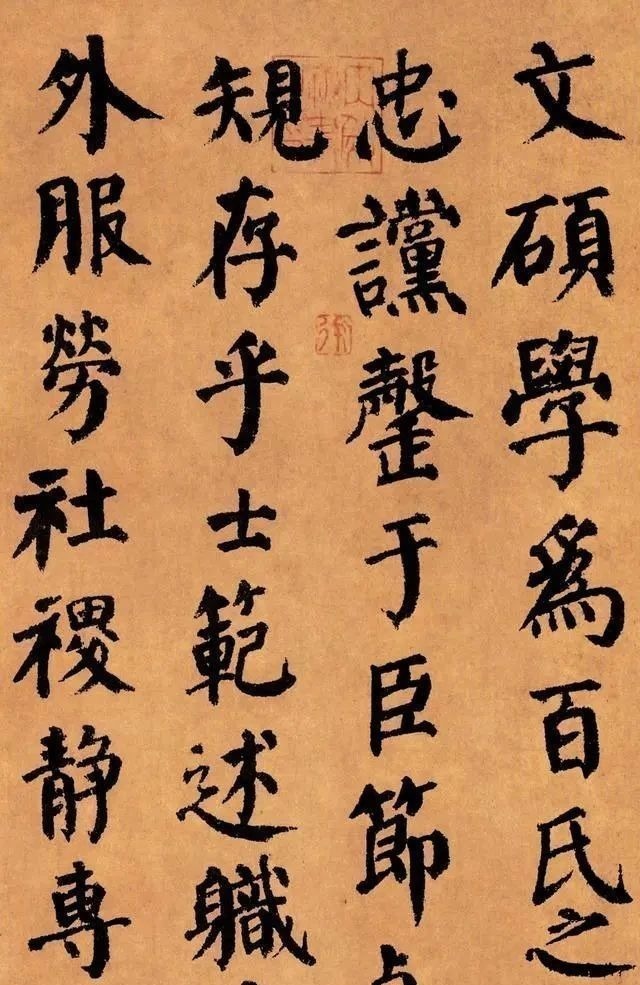 文碩學爲百氏之
忠讜罄于臣節
規存乎士範述職
外服勞社稷静專